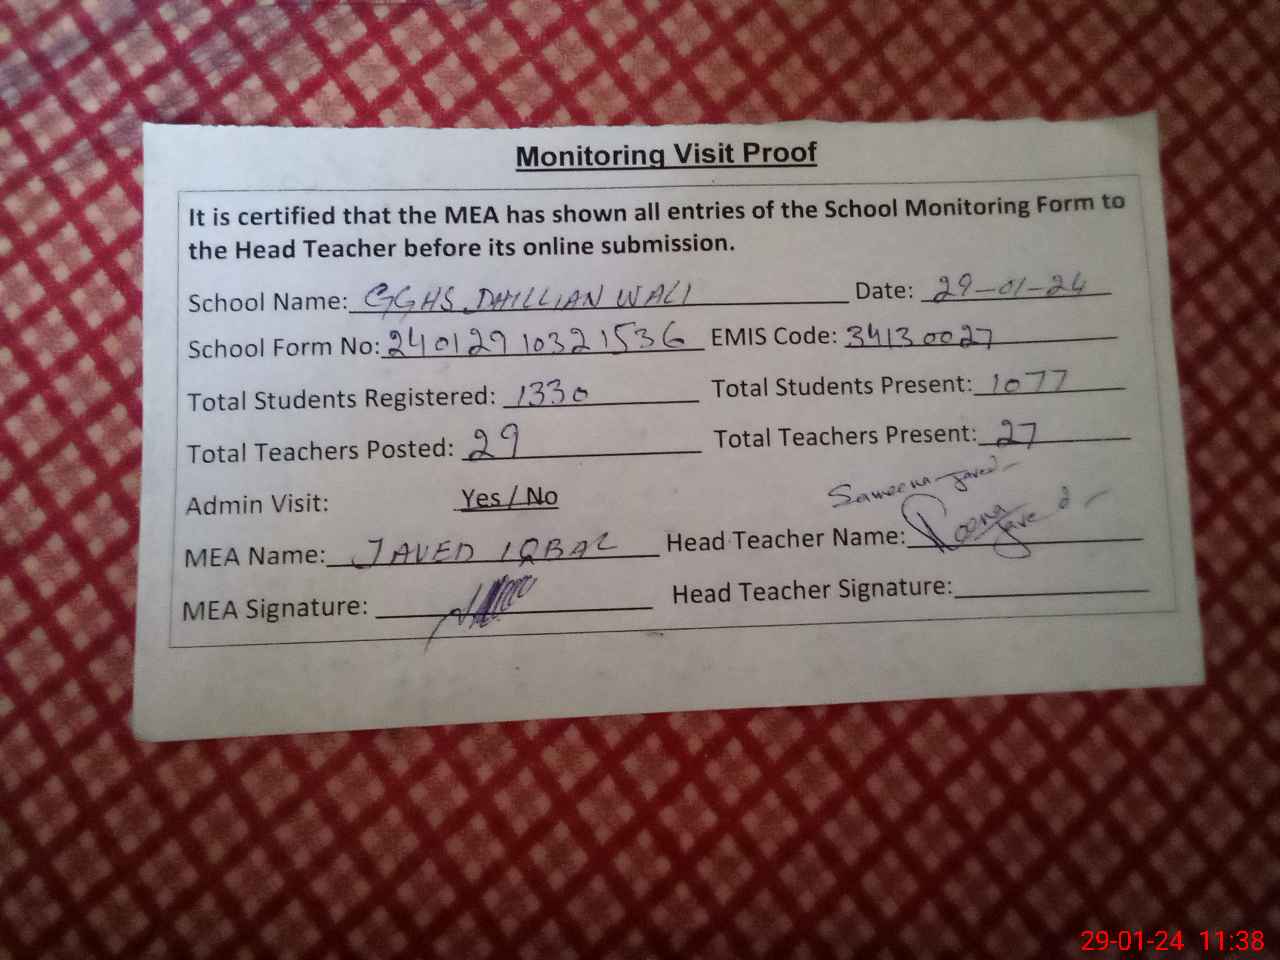 Monitoring Visit Proof
It is certified that the MEA has shown all entries of the School Monitoring Form to
the Head Teacher before its online submission.
School Name: GGHS DHILLIAN WALI Date: 29-01-24
School Form No: 24012910321536 EMIS Code: 34130027
Total Students Registered: 1330 Total Students Present: 1077
Total Teachers Posted: 29 Total Teachers Present: 27
Admin Visit: Yes / No
Sameena Javed
MEA Name: JAVED IQBAL Head Teacher Name:
MEA Signature: Head Teacher Signature:
29-01-24 11:38